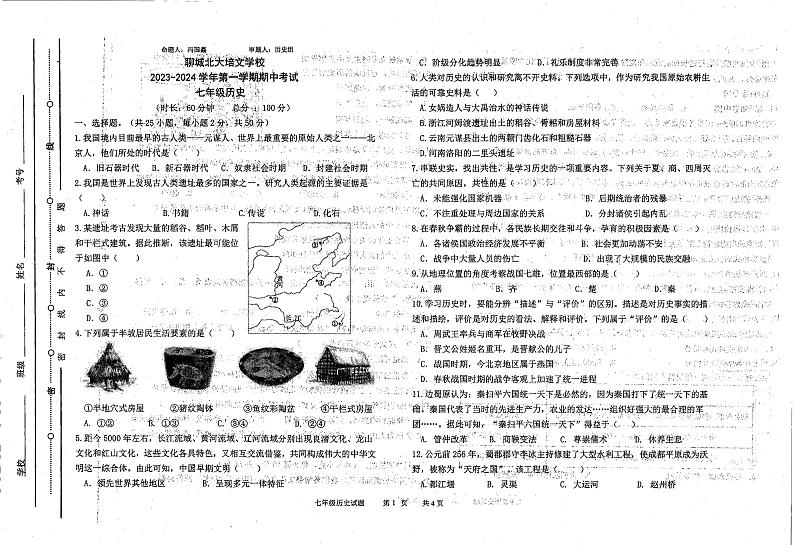 命题人：冯国鑫 审题人：历史组
聊城北大培文学校
2023-2024 学年第一学期期中考试
七年级历史
（时长：60 分钟 总分：100 分）
一、选择题。（共 25 小题，每小题 2 分，共 50 分）
1.我国境内目前最早的古人类——元谋人、世界上最重要的原始人类之一——北
京人，他们所处的时代是（ ）
A. 旧石器时代 B. 新石器时代 C. 奴隶社会时期 D. 封建社会时期
2.我国是世界上发现古人类遗址最多的国家之一。研究人类起源的主要证据是
（ ）
A.神话 B.书籍 C.传说 D.化石
3.某遗址考古发现大量的稻谷、稻叶、木屑
和干栏式建筑。据此推断，该遗址最可能位
于如图中（ ）
A. ①
B. ②
C. ③
D. ④
黄河
长江
4.下列属于半坡居民生活要素的是（ ）
①半地穴式房屋 ②猪纹陶钵 ③鱼纹彩陶盆 ④干栏式房屋
A. ①② B. ①③ C. ③④ D. ②④
5.距今 5000 年左右，长江流域、黄河流域、辽河流域分别出现良渚文化、龙山
文化和红山文化，这些文化各具特色，又相互交流借鉴，共同构成伟大的中华文
明这一综合体。由此可知，中国早期文明（ ）
A．领先世界其他地区 B．呈现多元一体特征
C．阶级分化趋势明显 D．礼乐制度非常完善
6.人类对历史的认识和研究离不开史料，下列选项中，作为研究我国原始农耕生
活的可靠史料是（ ）
A.女娲造人与大禹治水的神话传说
B.浙江河姆渡遗址出土的稻谷、骨耜和房屋材料
C.云南元谋县出土的两颗门齿化石和粗糙石器
D.河南洛阳的二里头遗址
7.串联史实，找出共性，是学习历史的一项重要内容。下列关于夏、商、西周灭
亡的共同原因，共性的是（ ）
A．未能强化国家机器 B．后期统治者的残暴
C．不注重处理与周边国家的关系 D．分封诸侯引起内乱
8.在春秋争霸的过程中，各民族长期交往和斗争，孕育的积极因素是（ ）
A．各诸侯国政治经济发展不平衡 B．社会更加动荡不安
C．战争中大量人员的伤亡 D．出现了大规模的民族交融
9.从地理位置的角度考察战国七雄，位置最西部的是（ ）
A．燕 B．齐 C．楚 D．秦
10.学习历史时，要能分辨“描述”与“评价”的区别。描述是对历史事实的描
述和描绘，评价是对历史的看法、解释和评价。下列属于“评价”的是（ ）
A．周武王率兵与商军在牧野决战
B．晋文公姓姬名重耳，是晋献公的儿子
C．战国时期，今北京地区属于燕国
D．春秋战国时期的战争客观上加速了统一进程
11.边麓原认为：秦扫平六国统一天下是必然的，因为秦国打下了统一天下的基
础，秦国代表了当时的先进生产力，农业的发达……组织好强大的最合用的军
团……。据此可知，“秦扫平六国统一天下”得益于（ ）
A．管仲改革 B．商鞅变法 C．尊崇儒术 D．休养生息
12.公元前 256 年，蜀郡郡守李冰主持修建了大型水利工程，使成都平原成为沃
野，被称为“天府之国”，该工程是（ ）
A.都江堰 B．灵渠 C．大运河 D．赵州桥
七年级历史试题 第 1 页 共 4 页
学校 班级 姓名 考号
密 封 线 内 不 得 答 题
密 封 线